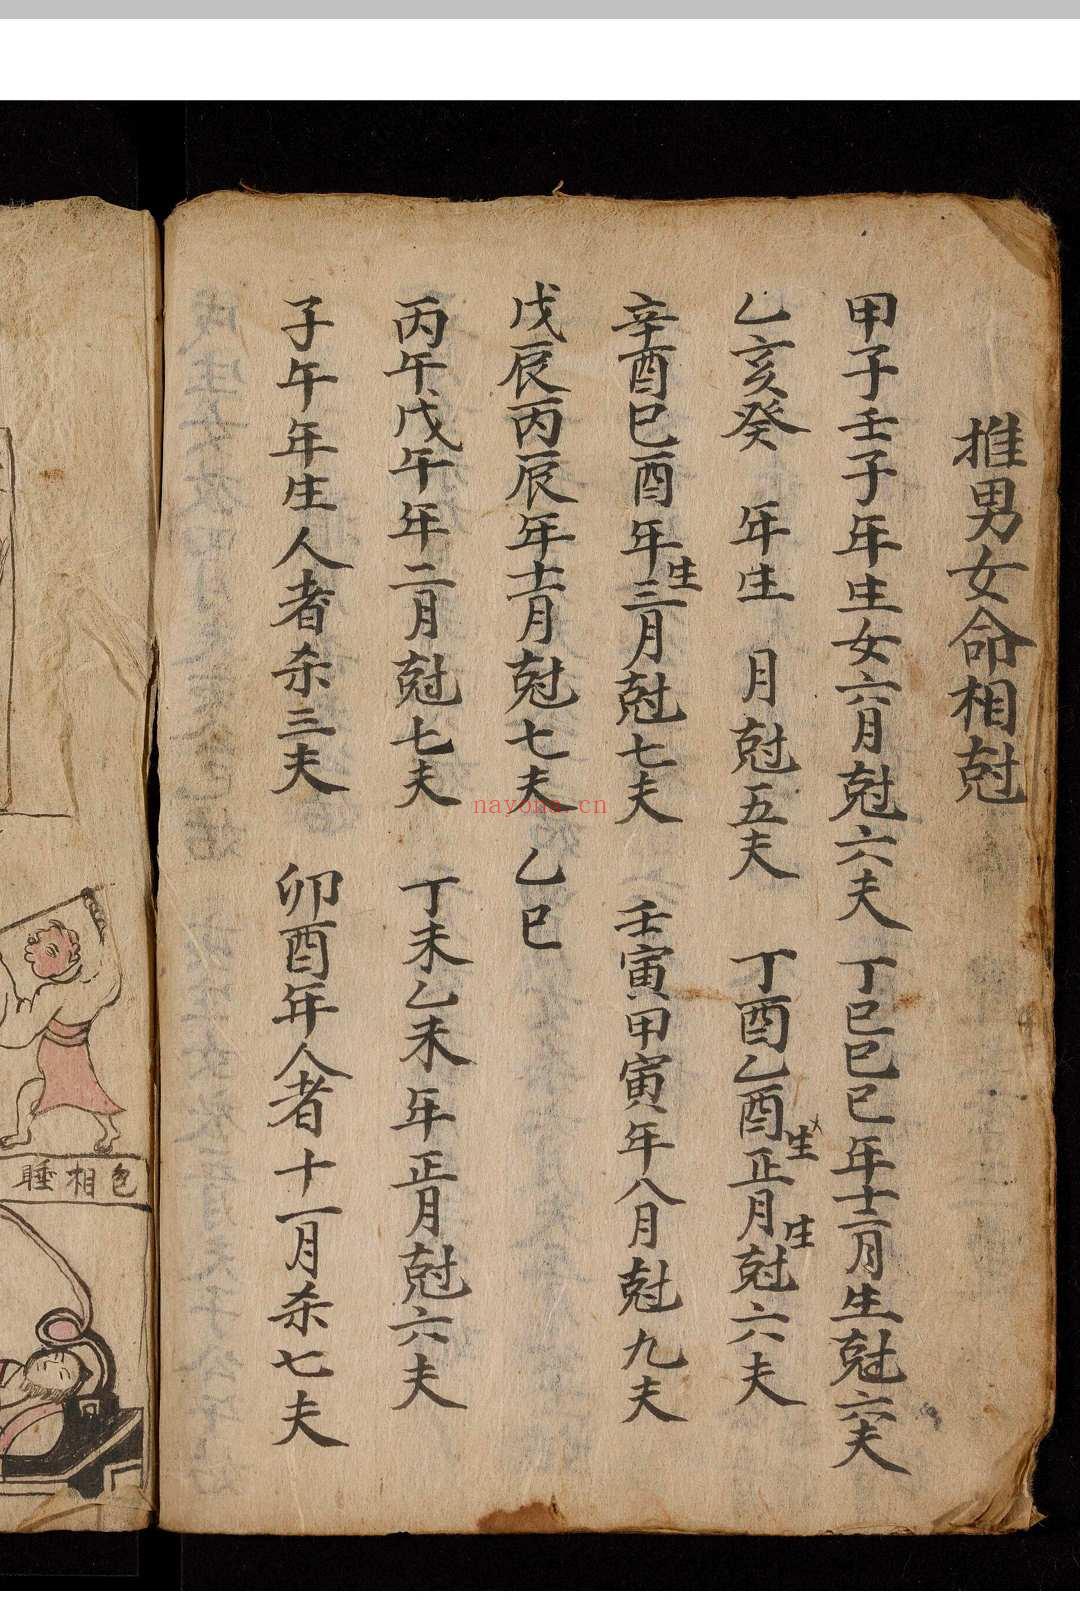 推男女命相尅
甲子壬子年生女六月尅六夫 丁巳己巳年十二月生尅六夫
乙亥癸 年生 月尅五夫 丁酉乙酉生正月生尅六夫
辛酉巳酉年生三月尅七夫 壬寅甲寅年八月尅九夫
戊辰丙辰年十一月尅七夫 乙巳
丙午戊午年二月尅七夫 丁未乙未年正月尅六夫
子午年生人者杀三夫 卯酉年人者十一月杀七夫
色相睡
nayona.cn